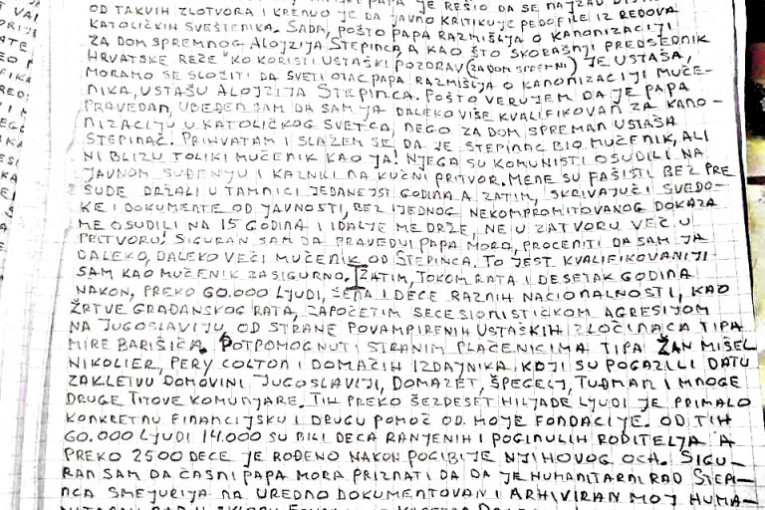 PAPA JE REŠIO DA SE
OD TAKVIH ZLOTVORA I KRENUO JE DA JAVNO KRITIKUJE PEDOFILE IZ REDOVA
KATOLIČKIH SVEŠTENIKA. SADA, POŠTO PAPA RAZMIŠLJA O KANONIZACIJI
ZA DOM SPREMNOG ALOJZIJA STEPINCA, A KAO ŠTO SKORAŠNJI PREDSEDNIK
HRVATSKE REŽE "KO KORISTI USTAŠKI POZDRAV (ZA DOM SPREMNI) JE USTAŠA,
MORAMO SE SLOŽITI DA SVETI OTAC PAPA RAZMIŠLJA O KANONIZACIJI MUČE-
NIKA, USTAŠU ALOJZIJA STEPINCA. POŠTO VERUJEM DA JE PAPA
PRAVEDAN, UBEĐEN SAM DA SAM JA DALEKO VIŠE KVALIFIKOVAN ZA KANO-
NIZACIJU U KATOLIČKOG SVETCA, NEGO ZA DOM SPREMAN USTAŠA
STEPINAC. PRIHVATAM I SLAŽEM SE DA JE STEPINAC BIO MUČENIK, ALI
NI BLIZU TOLIKI MUČENIK KAO JA! NJEGA SU KOMUNISTI OSUDILI NA
JAVNOM SUĐENJU I KAZNILI NA KUĆNI PRITVOR. MENE SU FAŠISTI BEZ PRE
SUDE DRŽALI U TAMNICI JEDANEJST GODINA A ZATIM, SKRIVAJUĆI SVEDO-
KE I DOKUMENTE OD JAVNOSTI, BEZ IJEDNOG NEKOMPROMITOVANOG DOKAZA
ME OSUDILI NA 15 GODINA I IDALJE ME DRŽE, NE U ZATVORU VEĆ U
PRITVORU! SIGURAN SAM DA PRAVEDNI PAPA MORA, PROCENITI DA SAM JA
DALEKO, DALEKO VEĆI MUČENIK OD STEPINCA. TO JEST KVALIFIKOVANIJI
SAM KAO MUČENIK ZASIGURNO. ZATIM, TOKOM RATA I DESETAK GODINA
NAKON, PREKO 60.000 LJUDI, ŽENA I DECE RAZNIH NACIONALNOSTI, KAO
ŽRTVE GRAĐANSKOG RATA, ZAPOČETIM SECESIONISTIČKOM AGRESIJOM
NA JUGOSLAVIJU OD STRANE POVAMPIRENIH USTAŠKIH ZLOČINACA TIPA
MIRE BARIŠIĆA. POTPOMOGNUTI STRANIM PLAĆENICIMA TIPA ŽAN MIŠEL
NIKOLIER, PERY COLTON I DOMAĆIH IZDAJNIKA KOJI SU POGAZILI DATU
ZAKLETVU DOMOVINI JUGOSLAVIJI, DOMAZET, ŠPEGELJ, TUĐMAN I MNOGE
DRUGE TITOVE KOMUNJARE. TIH PREKO ŠEZDESET HILJADE LJUDI JE PRIMALO
KONKRETNU FINANCIJSKU I DRUGU POMOĆ OD MOJE FONDACIJE. OD TIH
60.000 LJUDI 14.000 SU BILI DECA RANJENIH I POGINULIH RODITELJA A
PREKO 2500 DECE JE ROĐENO NAKON POGIBIJE NJIHOVOG OCA. SIGU-
RAN SAM DA ČASNI PAPA MORA PRIZNATI DA DA JE HUMANITARNI RAD STEPI-
NCA SMEJURIJA NA UREDNO DOKUMENTOVAN I ARHIVIRAN MOJ HUMA-